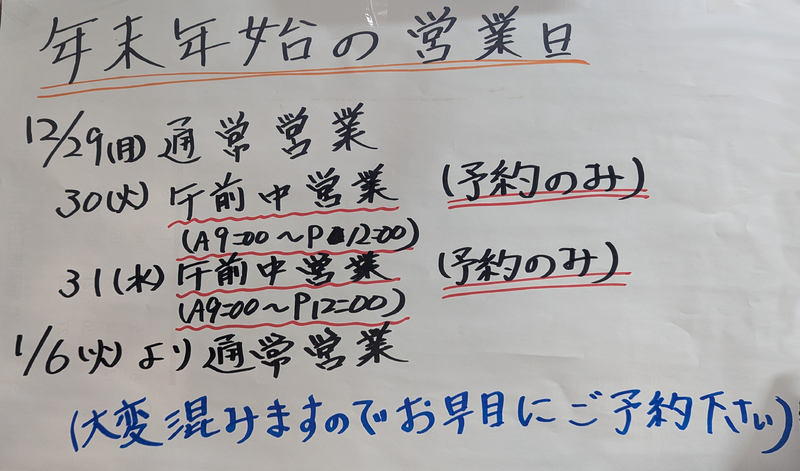 年末年始の営業日
12/29(月) 通常営業
30(火) 午前中営業 (予約のみ)
(A9=00～P12=00)
31(水) 午前中営業 (予約のみ)
(A9=00～P12=00)
1/6(火)より通常営業
(大変混みますのでお早目にご予約下さい)